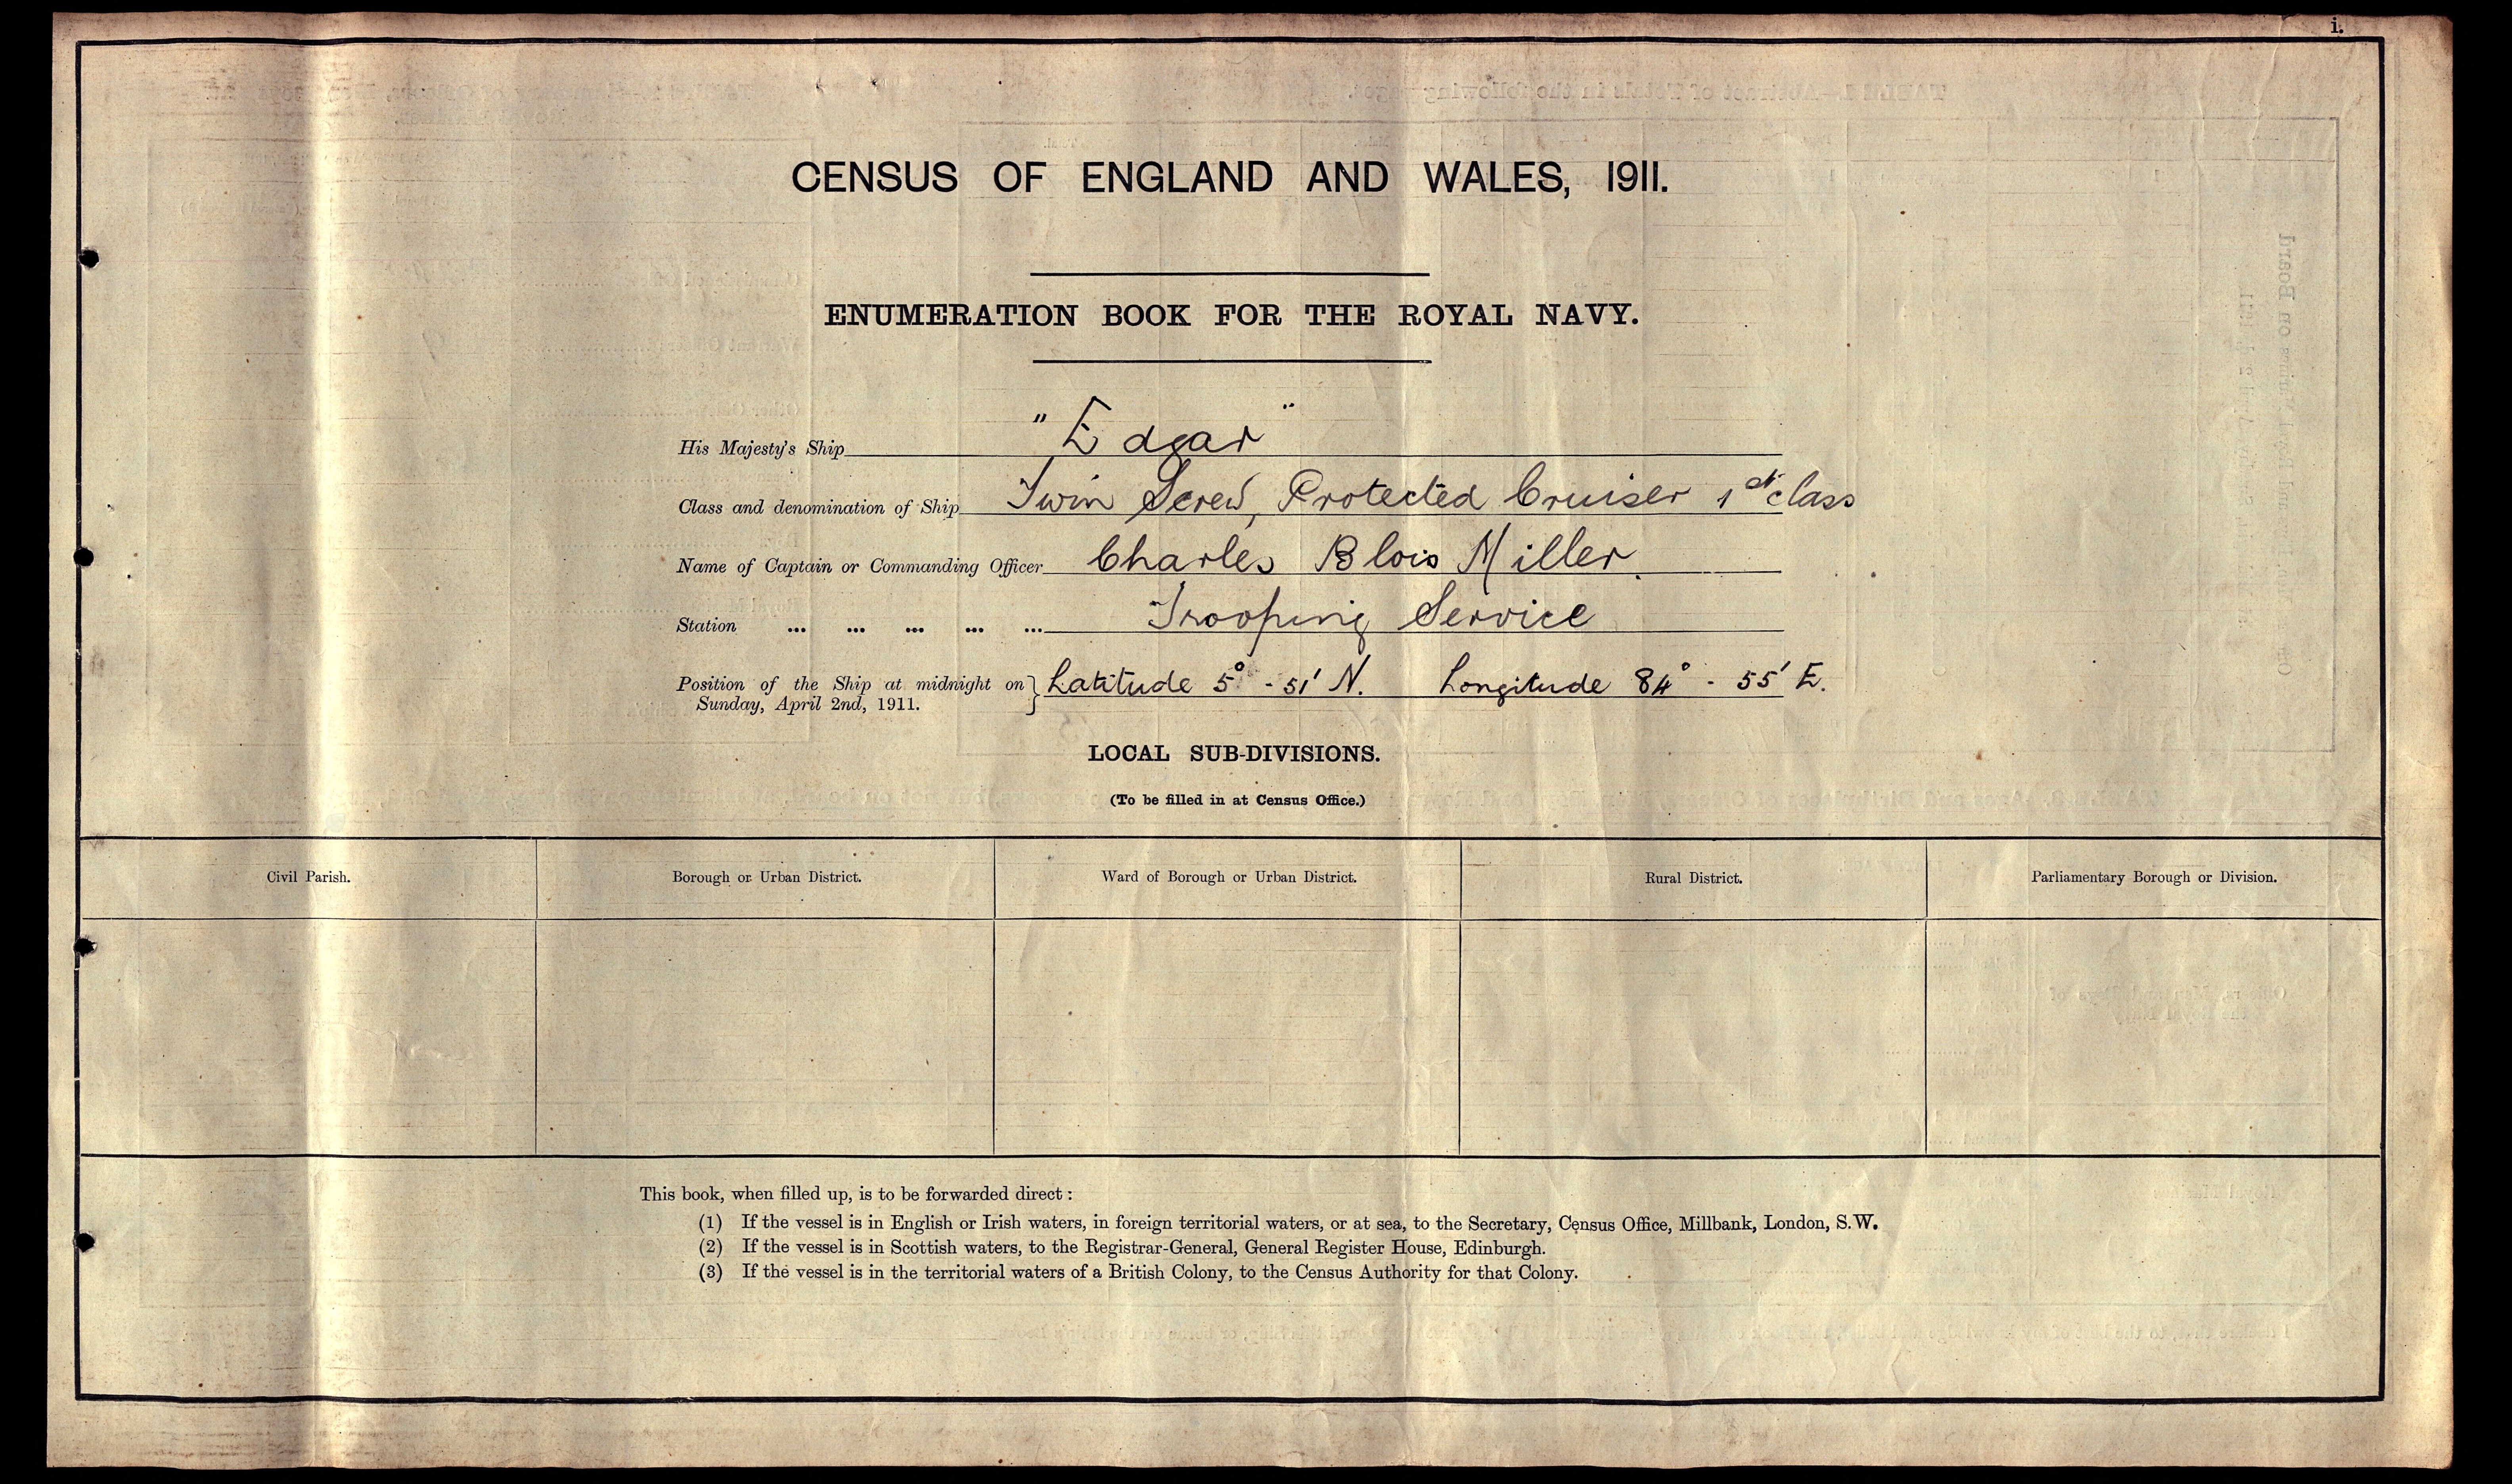 i.
CENSUS OF ENGLAND AND WALES, 1911.
ENUMERATION BOOK FOR THE ROYAL NAVY.
His Majesty's Ship "Edgar"
Class and denomination of Ship Twin Screw, Protected Cruiser 1st class
Name of Captain or Commanding Officer Charles Blois Miller.
Station ... ... ... ... ... Trooping Service
Position of the Ship at midnight on } Latitude 5° - 51' N. Longitude 84° - 55' E.
Sunday, April 2nd, 1911.
LOCAL SUB-DIVISIONS.
(To be filled in at Census Office.)
Civil Parish. Borough or Urban District. Ward of Borough or Urban District. Rural District. Parliamentary Borough or Division.
This book, when filled up, is to be forwarded direct :
(1) If the vessel is in English or Irish waters, in foreign territorial waters, or at sea, to the Secretary, Census Office, Millbank, London, S.W.
(2) If the vessel is in Scottish waters, to the Registrar-General, General Register House, Edinburgh.
(3) If the vessel is in the territorial waters of a British Colony, to the Census Authority for that Colony.